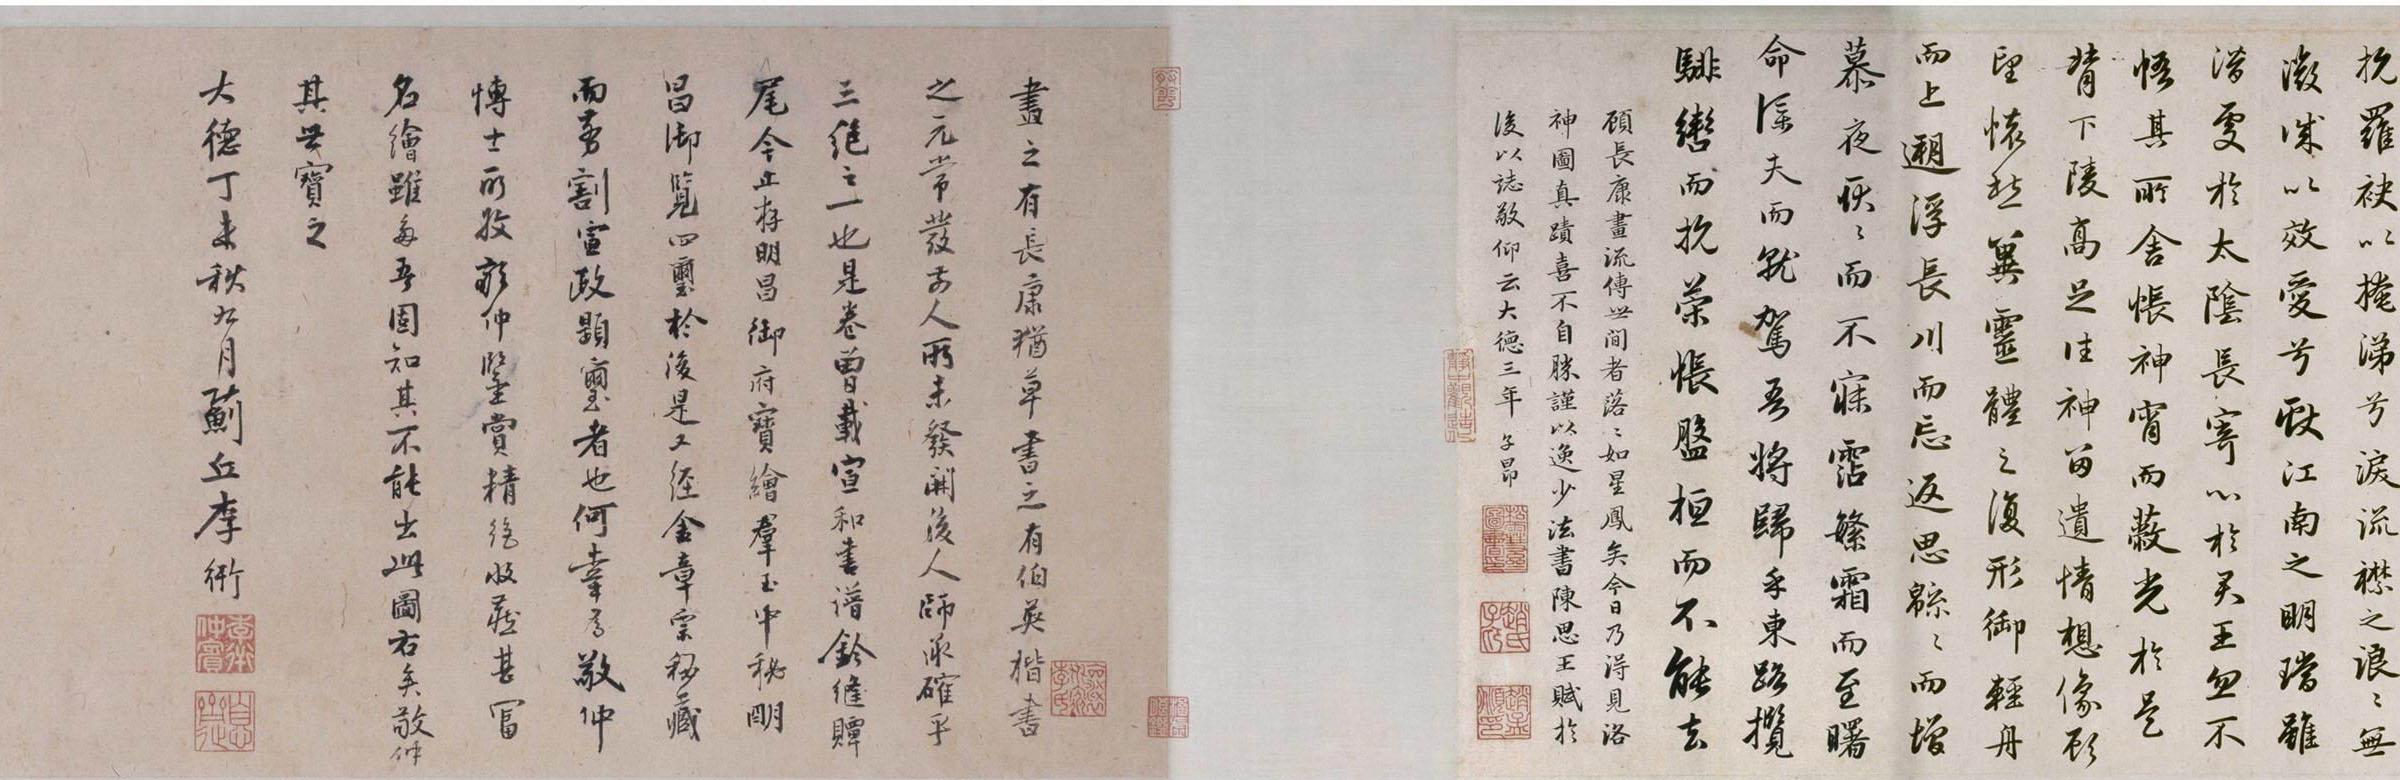 抗羅袂以掩涕兮淚流襟之浪ミ無
微誠以效愛兮獻江南之明璫雖
潛處於太陰長寄心於君王忽不
悟其所舍悵神宵而蔽光於是
背下陵高足往神留遺情想像顧
望懷愁冀靈體之復形御輕舟
而上遡浮長川而忘返思緜ミ而增
慕夜耿ミ而不寐霑繁霜而至曙
命僕夫而就駕吾將歸乎東路攬
騑轡而抗策悵盤桓而不能去
顧長康畫流傳世間者落ミ如星鳳矣今日乃得見洛
神圖真蹟喜不自勝謹以逸少法書陳思王賦於
後以誌敬仰云大德三年子昂
畫之有長康猶草書之有伯英楷書
之元常發前人所未發開後人師承確乎
三絕之一也是卷曾載宣和書譜鈐縫贉
尾今止存明昌御府寶繪群玉中秘明
昌御覽四璽於後是又經金章宗秘藏
而剪割宣政顆璽者也何幸為敬仲
博士所收敬仲鑒賞精絕收藏甚富
名繪雖多吾固知其不能出此圖右矣敬仲
其世寶之
大德丁未秋九月薊丘李衎